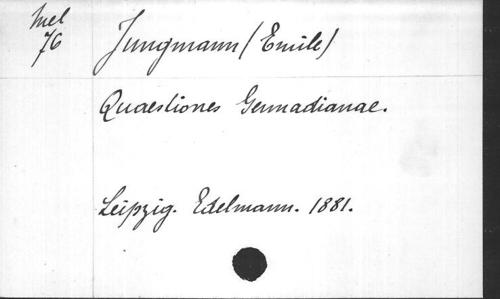 Mel
76
Jungmann (Emile)
Quaestiones Gennadianae.
Leipzig. Edelmann. 1881.